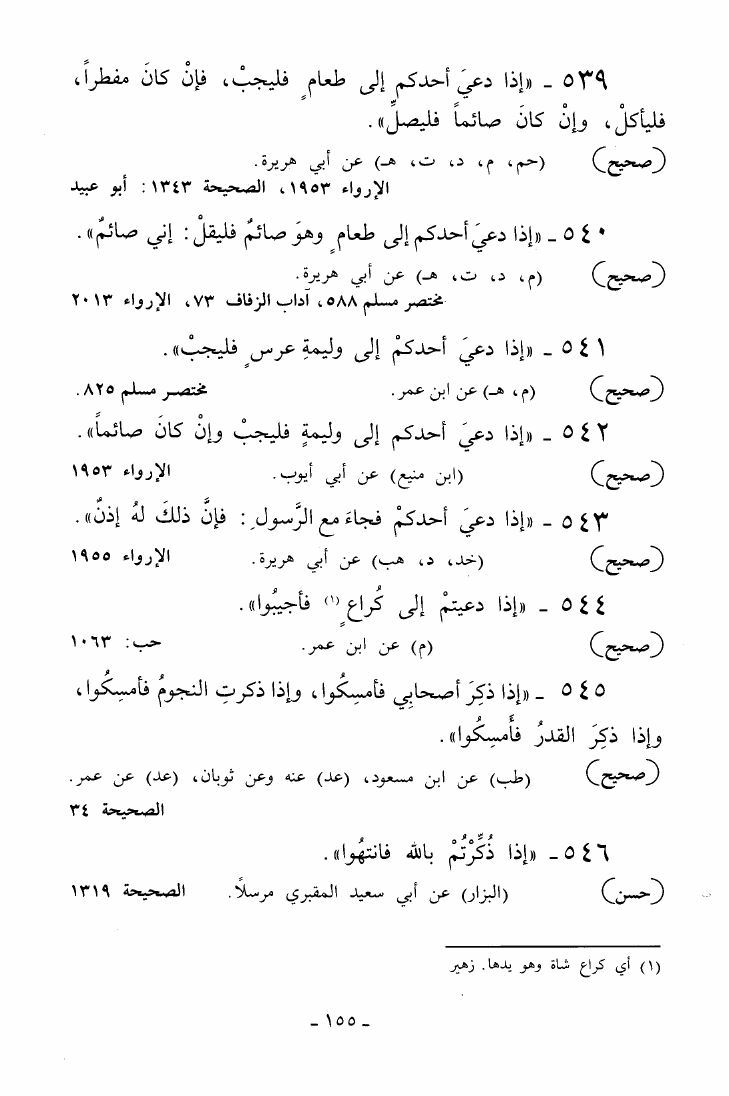 ٥٣٩ ـ «إذا دعيَ أحدكم إلى طعامٍ فليجبْ، فإنْ كانَ مفطراً،
فليأكلْ، وإنْ كانَ صائماً فليصلِّ».
(صحيح) (حم، م، د، ت، هـ) عن أبي هريرة.
الإرواء ١٩٥٣، الصحيحة ١٣٤٣: أبو عبيد
٥٤٠ ـ «إذا دعيَ أحدكم إلى طعامٍ وهوَ صائمٌ فليقلْ: إني صائمٌ».
(صحيح) (م، د، ت، هـ) عن أبي هريرة.
مختصر مسلم ٥٨٨، آداب الزفاف ٧٣، الإرواء ٢٠١٣
٥٤١ ـ «إذا دعيَ أحدكمْ إلى وليمةِ عرسٍ فليجبْ».
(صحيح) (م، هـ) عن ابن عمر. مختصر مسلم ٨٢٥.
٥٤٢ ـ «إذا دعيَ أحدكم إلى وليمةٍ فليجبْ وإنْ كانَ صائماً».
(صحيح) (ابن منيع) عن أبي أيوب. الإرواء ١٩٥٣
٥٤٣ ـ «إذا دعيَ أحدكمْ فجاءَ مع الرَّسولِ: فإنَّ ذلكَ لهُ إذنٌ».
(صحيح) (خد، د، هب) عن أبي هريرة. الإرواء ١٩٥٥
٥٤٤ ـ «إذا دعيتمْ إلى كُراعٍ (١) فأجيبُوا».
(صحيح) (م) عن ابن عمر. حب: ١٠٦٣
٥٤٥ ـ «إذا ذكِرَ أصحابِي فأمسِكُوا، وإذا ذكرتِ النجومُ فأمسِكُوا،
وإذا ذكِرَ القدرُ فأَمسِكُوا».
(صحيح) (طب) عن ابن مسعود، (عد) عنه وعن ثوبان، (عد) عن عمر.
الصحيحة ٣٤
٥٤٦ ـ «إذا ذُكِّرْتُمْ بالله فانتهُوا».
(حسن) (البزار) عن أبي سعيد المقبري مرسلاً. الصحيحة ١٣١٩
(١) أي كراع شاة وهو يدها. زهير
ـ ١٥٥ ـ